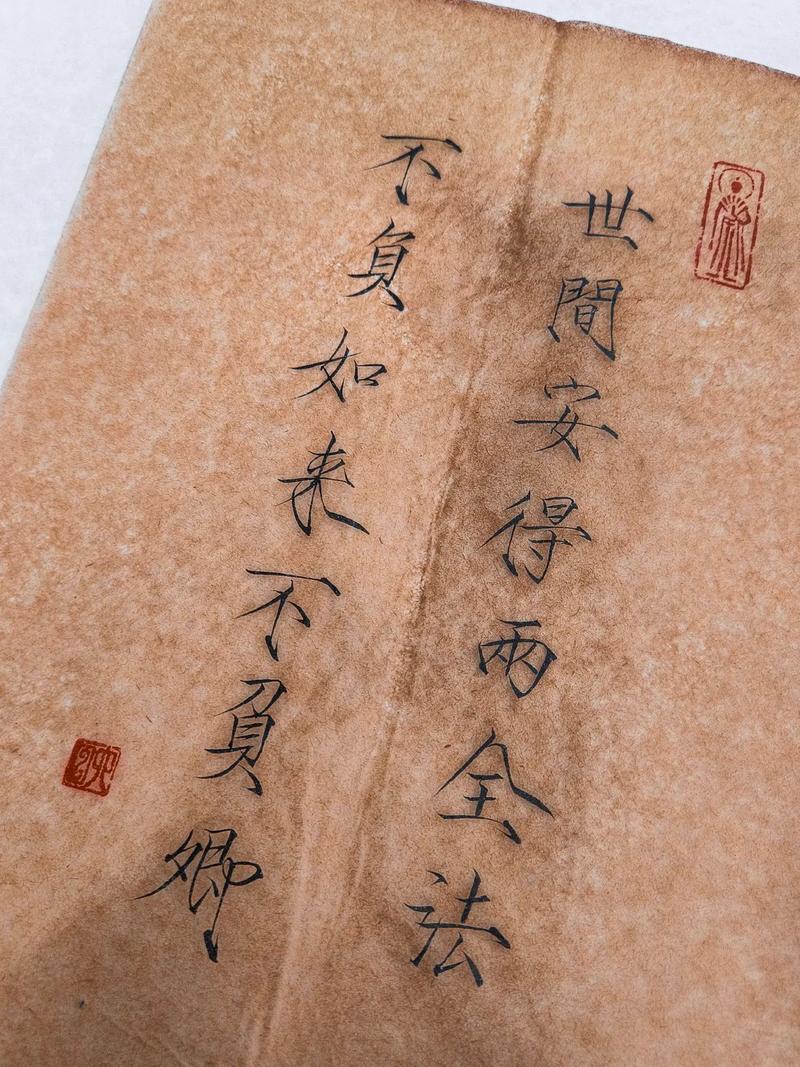 世間安得兩全法
不負如来不負卿